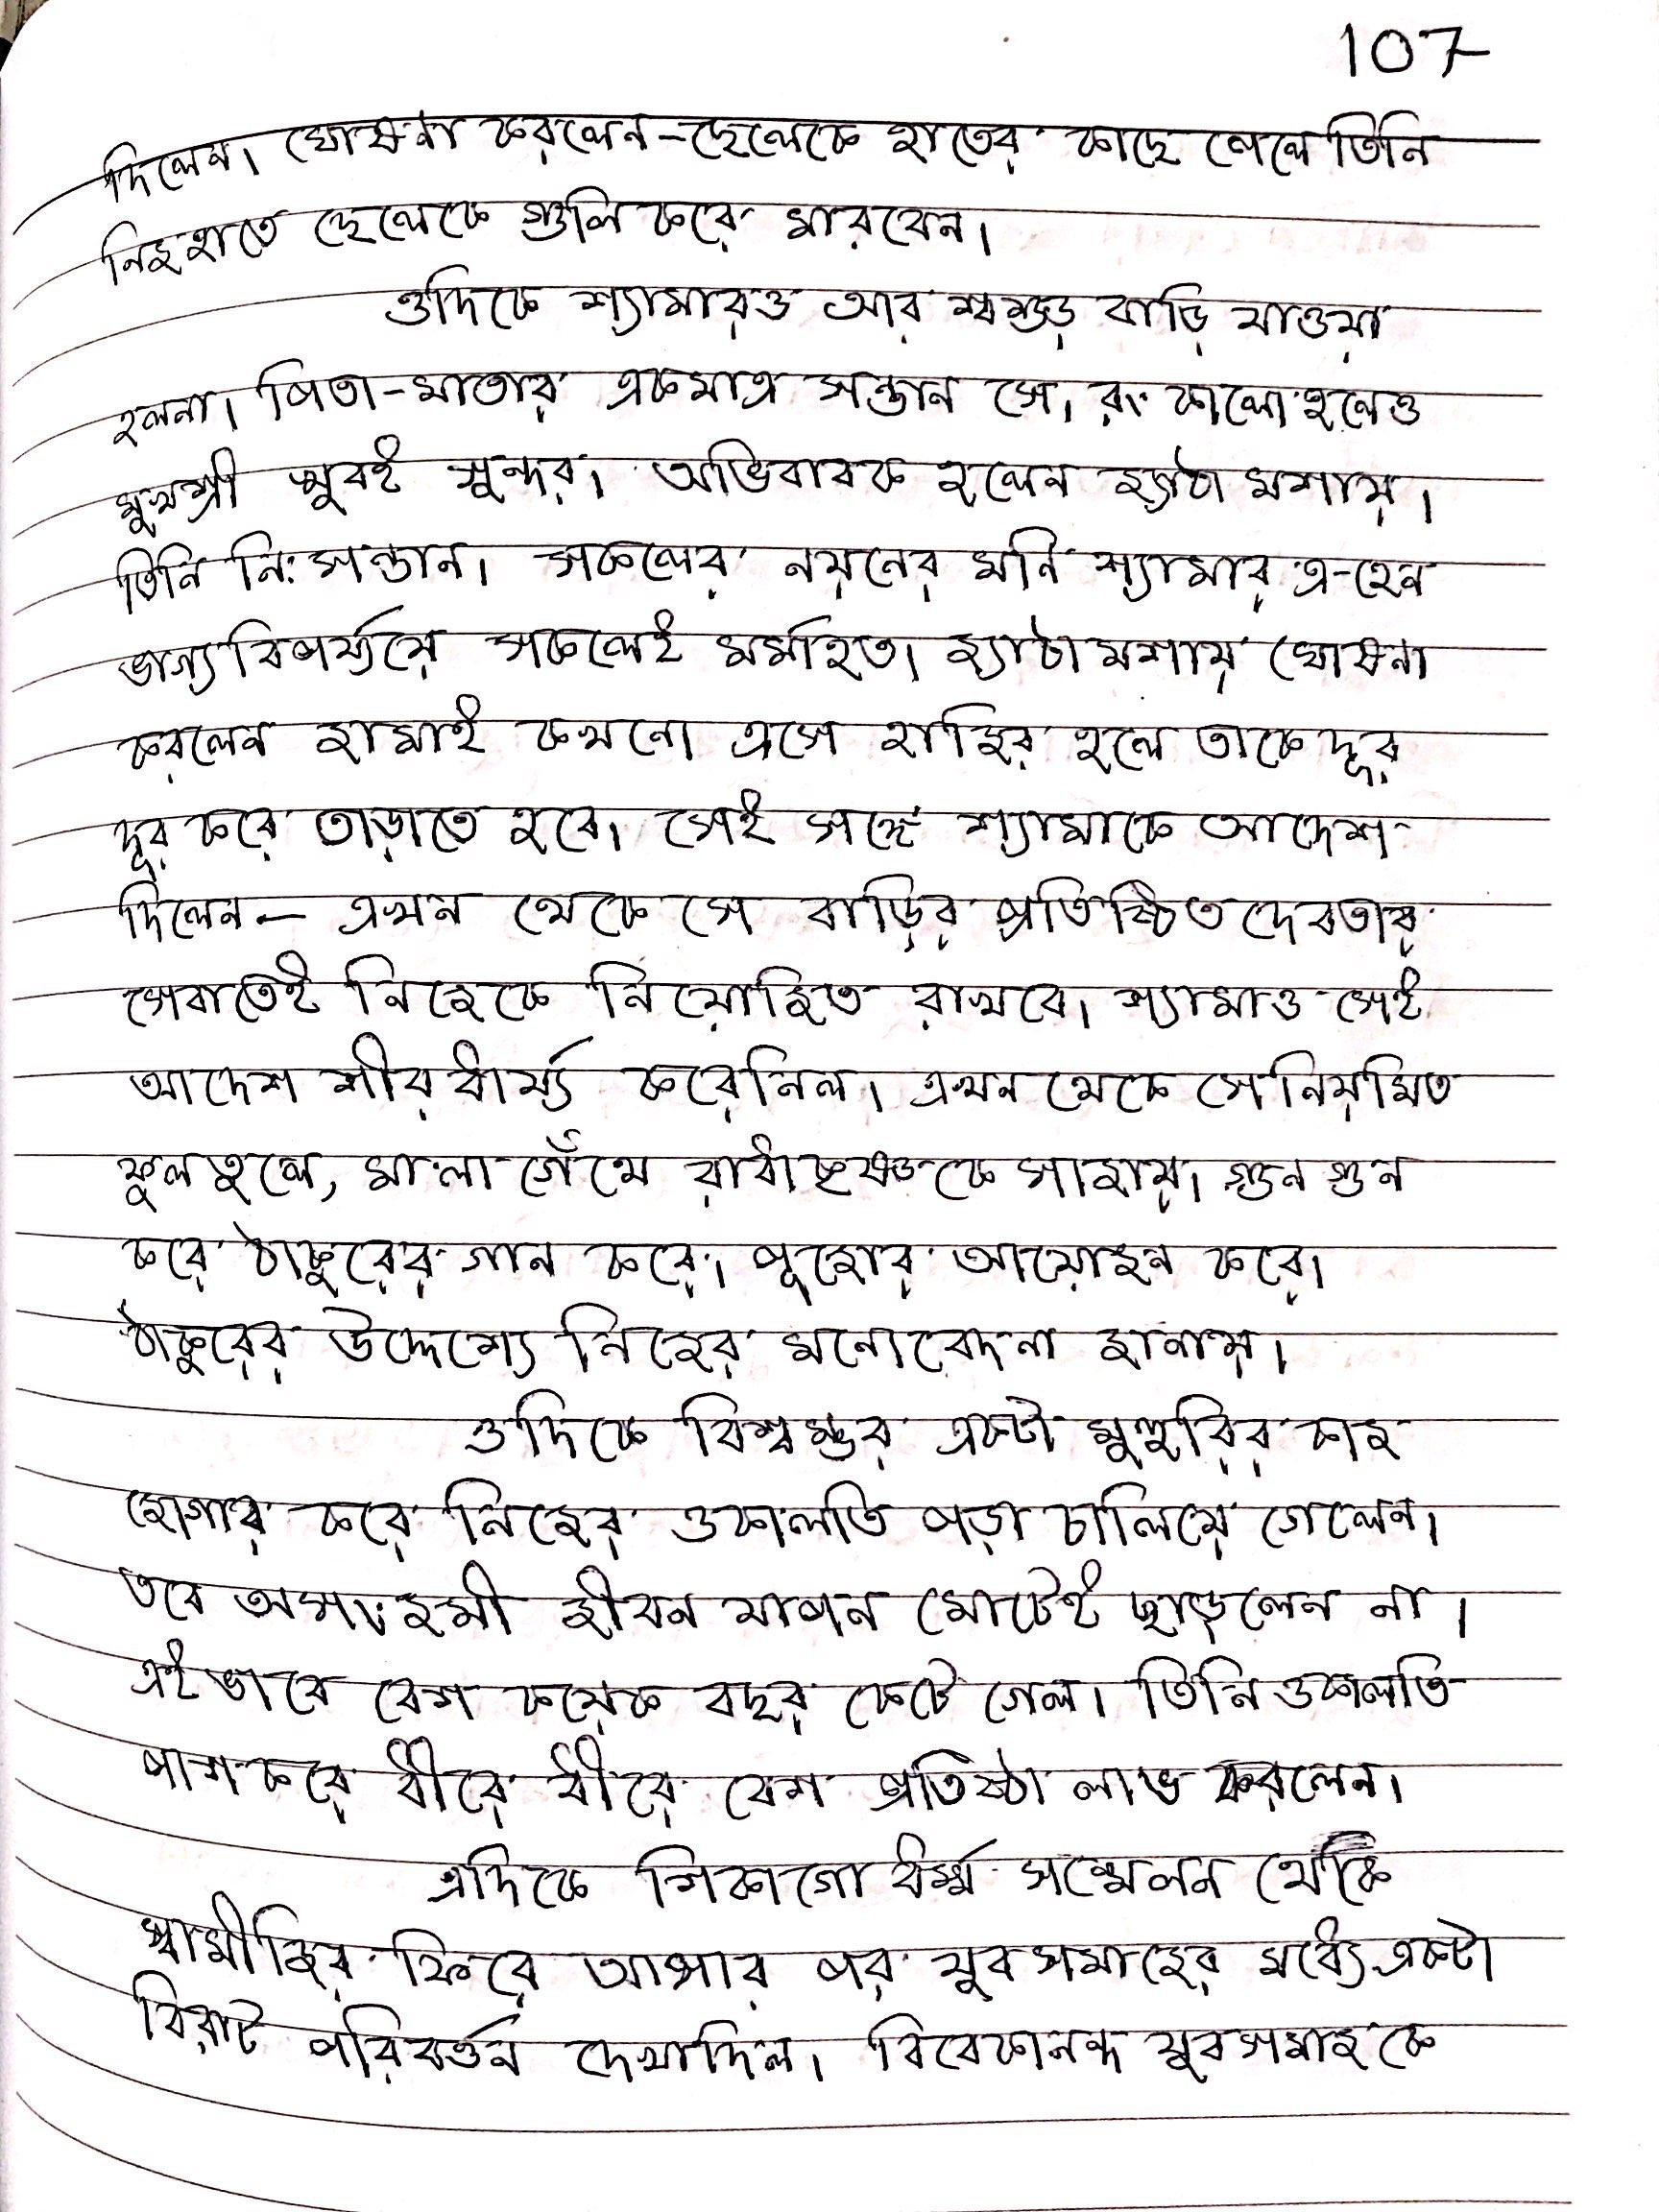 107
দিলেন। ঘোষনা করলেন-ছেলেকে হাতের কাছে পেলে তিনি
নিজহাতে ছেলেকে গুলি করে মারবেন।
ওদিকে শ্যামারও আর শ্বশুড় বাড়ি যাওয়া
হলনা। পিতা-মাতার একমাত্র সন্তান সে। রং কালো হলেও
মুখশ্রী খুবই সুন্দর। অভিবাবক হলেন জ্যাঠা মশায়।
তিনি নিঃসন্তান। সকলের নয়নের মনি শ্যামার এ-হেন
ভাগ্যবিপর্য্যয়ে সকলেই মর্মাহত। জ্যাঠা মশায় ঘোষনা
করলেন জামাই কখনো এসে হাজির হলে তাকে দূর
দূর করে তাড়াতে হবে। সেই সঙ্গে শ্যামাকে আদেশ
দিলেন— এখন থেকে সে বাড়ির প্রতিষ্ঠিত দেবতার
সেবাতেই নিজেকে নিয়োজিত রাখবে। শ্যামাও সেই
আদেশ শীরধার্য্য করেনিল। এখন থেকে সে নিয়মিত
ফুল তুলে, মালা গেঁথে রাধাকৃষ্ণকে সাজায়। গুন গুন
করে ঠাকুরের গান করে। পূজোর আয়োজন করে।
ঠাকুরের উদ্দেশ্যে নিজের মনোবেদনা জানায়।
ওদিকে বিশ্বম্ভর একটা মুহুরির কাজ
জোগার করে নিজের ওকালতি পড়া চালিয়ে গেলেন।
তবে অসংযমী জীবন যাপন মোটেই ছাড়লেন না।
এইভাবে বেশ কয়েক বছর কেটে গেল। তিনি ওকালতি
পাশ করে ধীরে ধীরে বেশ প্রতিষ্ঠা লাভ করলেন।
এদিকে শিকাগো ধর্ম্ম সম্মেলন থেকে
স্বামীজির ফিরে আসার পর যুবসমাজের মধ্যে একটা
বিরাট পরিবর্ত্তন দেখাদিল। বিবেকানন্দ যুবসমাজকে